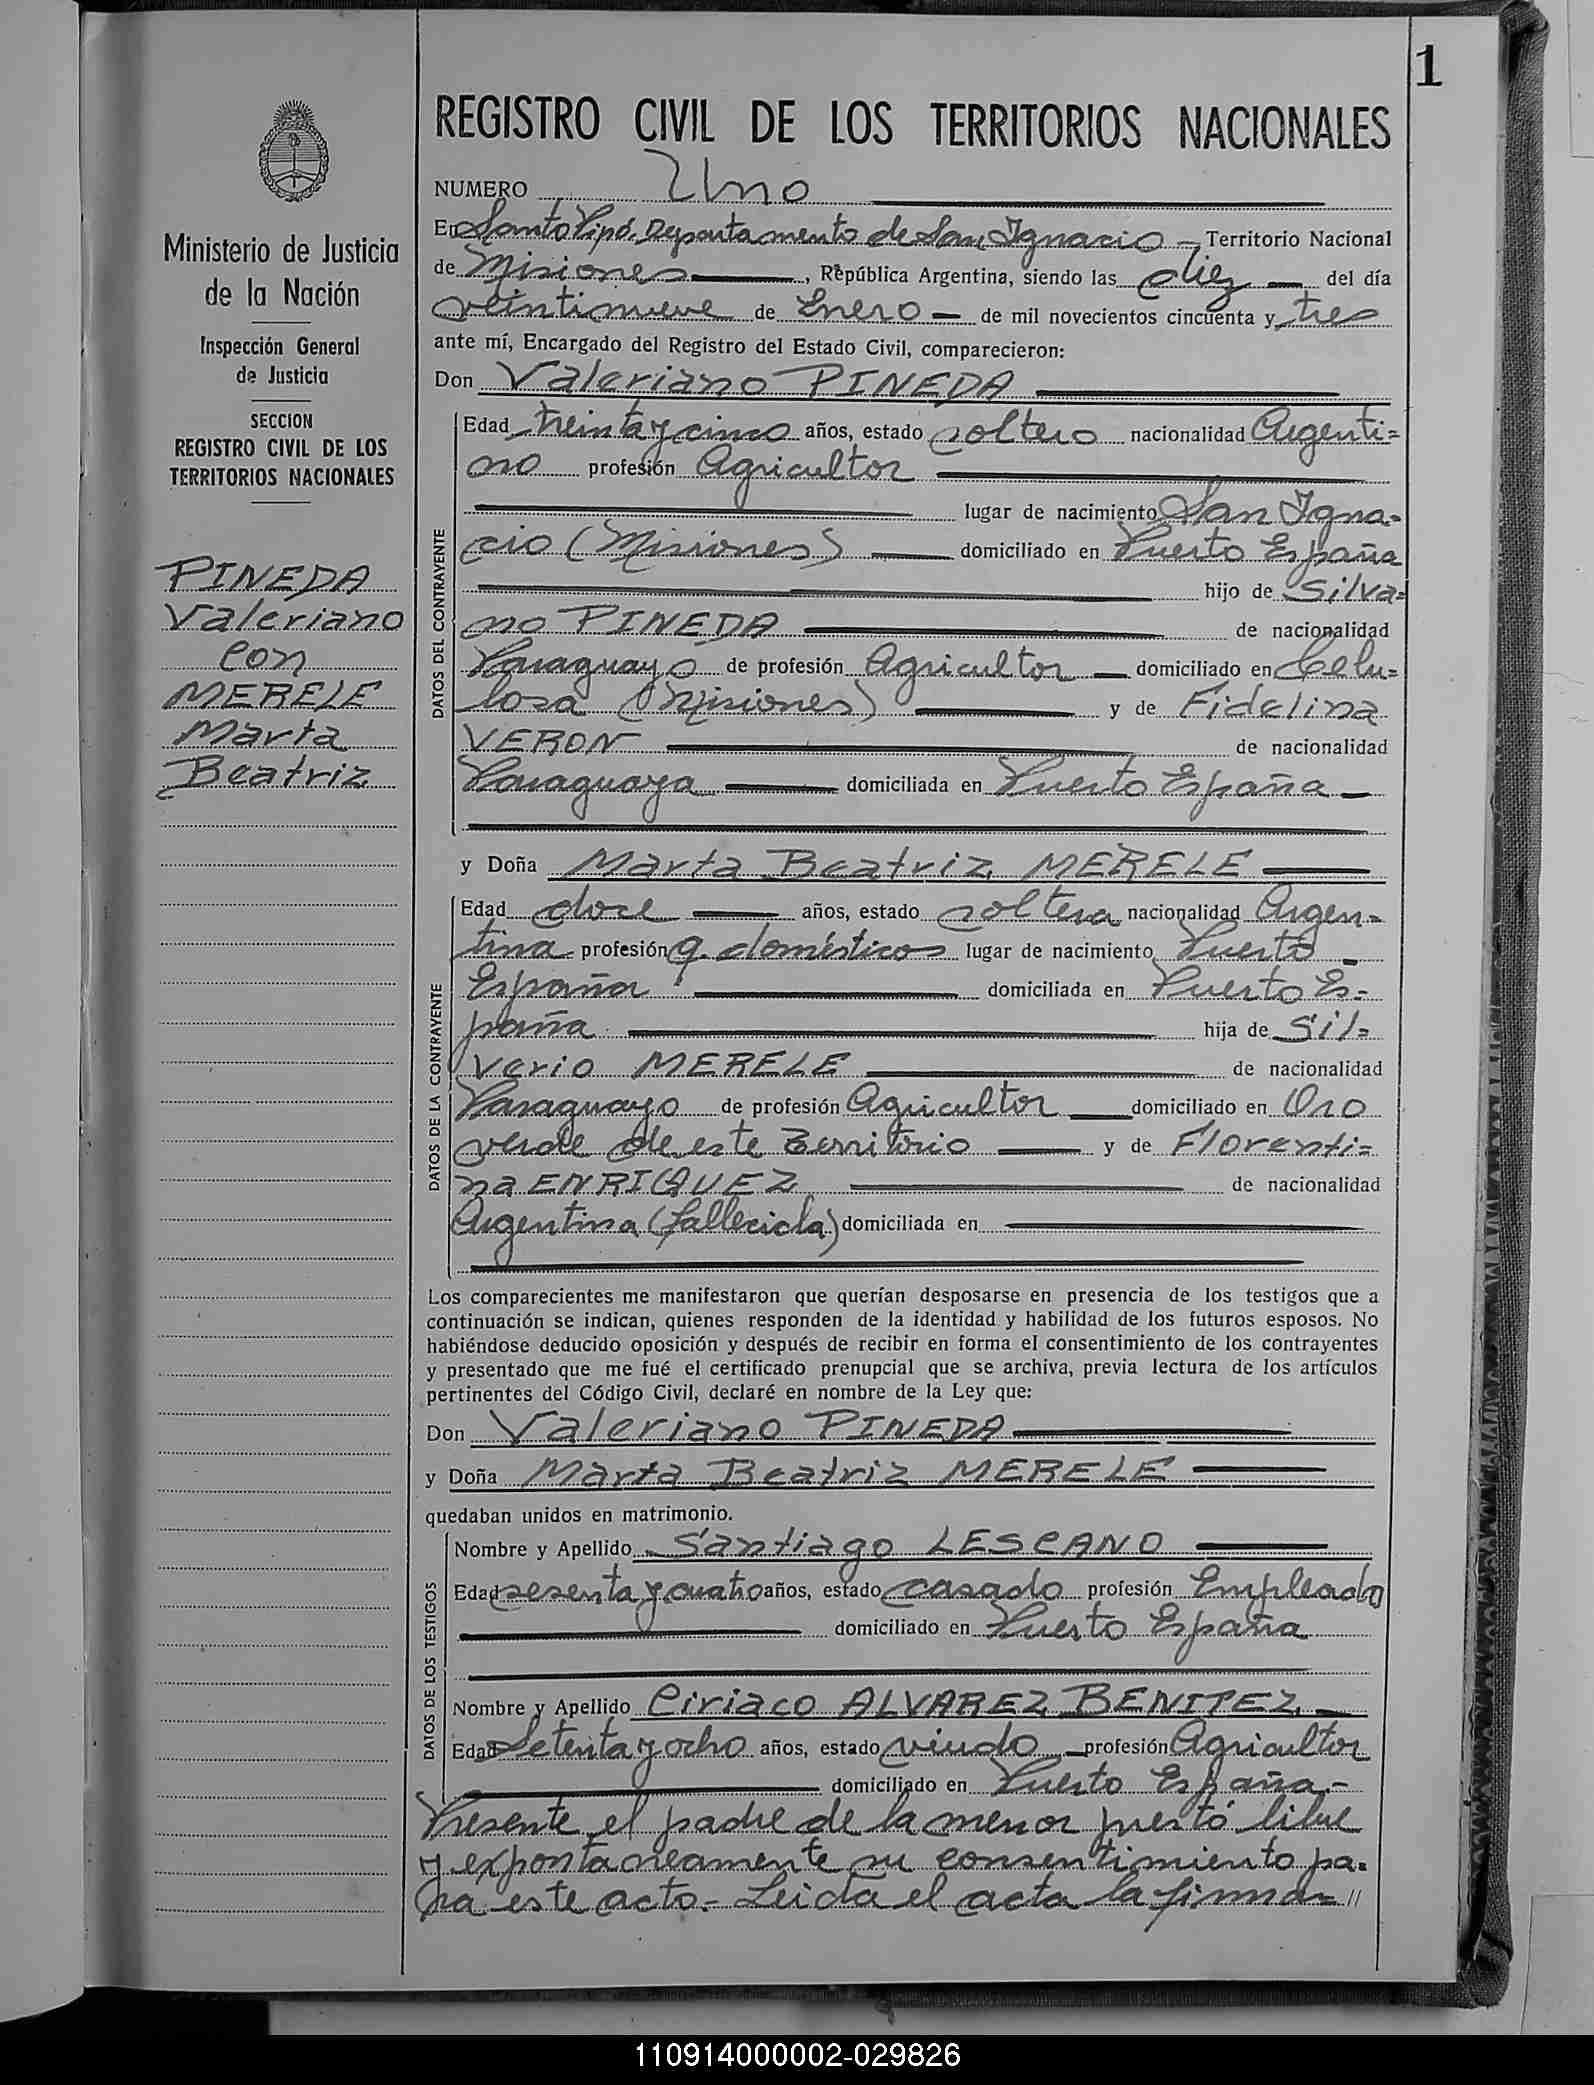 1
REGISTRO CIVIL DE LOS TERRITORIOS NACIONALES
NUMERO Uno
En Santo Pipó. Departamento de San Ignacio - Territorio Nacional
de Misiones, República Argentina, siendo las diez del día
veintinueve de Enero de mil novecientos cincuenta y tres
ante mí, Encargado del Registro del Estado Civil, comparecieron:
Don Valeriano PINEDA
Edad treinta y cinco años, estado soltero nacionalidad Argenti=
no profesión Agricultor
lugar de nacimiento San Igna-
cio (Misiones) domiciliado en Puerto España
hijo de Silva=
no PINEDA de nacionalidad
Paraguayo de profesión Agricultor domiciliado en Celu=
losa (Misiones) y de Fidelina
VERON de nacionalidad
Paraguaya domiciliada en Puerto España
DATOS DEL CONTRAYENTE
y Doña Marta Beatriz MERELE
Edad doce años, estado soltera nacionalidad Argen=
tina profesión q. domésticos lugar de nacimiento Puerto
España domiciliada en Puerto Es-
paña hija de Sil=
verio MERELE de nacionalidad
Paraguayo de profesión Agricultor domiciliado en Oro
verde de este Territorio y de Florenti=
na ENRIQUEZ de nacionalidad
Argentina (fallecida) domiciliada en
DATOS DE LA CONTRAYENTE
Los comparecientes me manifestaron que querían desposarse en presencia de los testigos que a
continuación se indican, quienes responden de la identidad y habilidad de los futuros esposos. No
habiéndose deducido oposición y después de recibir en forma el consentimiento de los contrayentes
y presentado que me fué el certificado prenupcial que se archiva, previa lectura de los artículos
pertinentes del Código Civil, declaré en nombre de la Ley que:
Don Valeriano PINEDA
y Doña Marta Beatriz MERELE
quedaban unidos en matrimonio.
Nombre y Apellido Santiago LESCANO
Edad sesenta y cuatro años, estado casado profesión Empleado
domiciliado en Puerto España
Nombre y Apellido Ciriaco ALVAREZ BENITEZ
Edad Setenta y ocho años, estado viudo profesión Agricultor
domiciliado en Puerto España.-
DATOS DE LOS TESTIGOS
Presente el padre de la menor prestó libre
y expontaneamente su consentimiento pa-
ra este acto.- Leida el acta la firma= //
Ministerio de Justicia
de la Nación
Inspección General
de Justicia
SECCION
REGISTRO CIVIL DE LOS
TERRITORIOS NACIONALES
PINEDA
Valeriano
con
MERELE
Marta
Beatriz
110914000002-029826